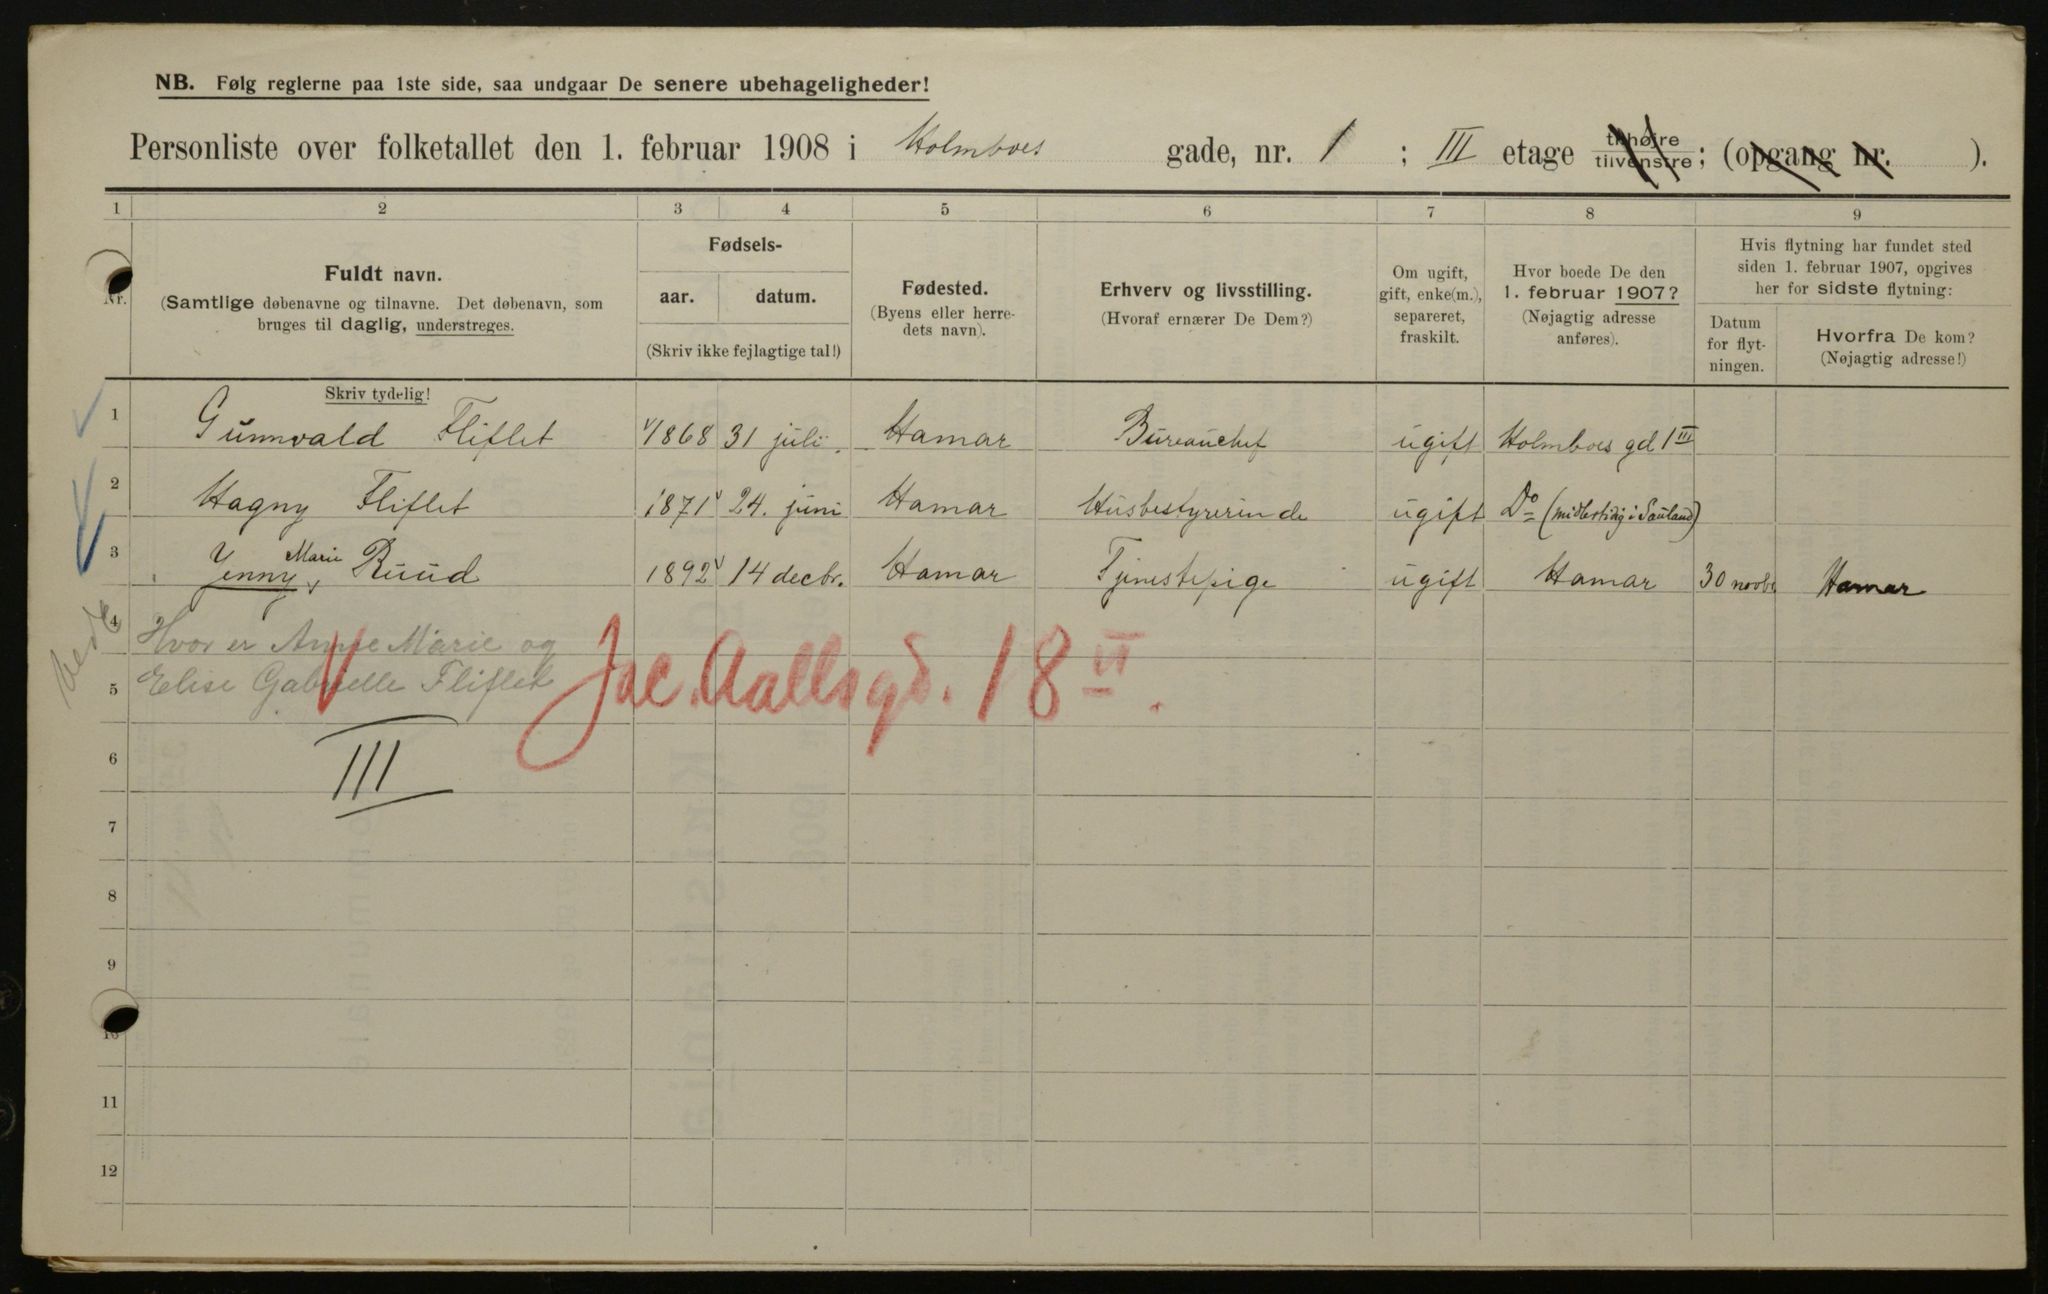 NB. Følg reglerne paa 1ste side, saa undgaar De senere ubehageligheder!
Personliste over folketallet den 1. februar 1908 i Holmboes gade, nr. 1 ; III etage tilhøjre tilvenstre ; (opgang nr. ).
1 2 3 4 5 6 7 8 9
Nr.
Fuldt navn.
(Samtlige døbenavne og tilnavne. Det døbenavn, som
bruges til daglig, understreges.
Skriv tydelig!
Fødsels-
aar. datum.
(Skriv ikke fejlagtige tal!)
Fødested.
(Byens eller herre-
dets navn).
Erhverv og livsstilling.
(Hvoraf ernærer De Dem?)
Om ugift,
gift, enke(m.),
separeret,
fraskilt.
Hvor boede De den
1. februar 1907?
(Nøjagtig adresse
anføres).
Hvis flytning har fundet sted
siden 1. februar 1907, opgives
her for sidste flytning:
Datum
for flyt-
ningen.
Hvorfra De kom?
(Nøjagtig adresse!)
1 Gunnvald Fliflet 1868 31 juli Hamar Bureauchef ugift Holmboes gd 1 III
2 Magny Fliflet 1871 24. juni Hamar Husbestyrerinde ugift Do (midlertidig i Sauland)
3 Jenny Marie Ruud 1892 14 decbr. Hamar Tjenestepige ugift Hamar 30 novbr Hamar
4 Hvor er Anne Marie og
5 Elise Gabrielle Fliflet
Jac. Aallsgd. 18 II.
6 III
7
8
9
10
11
12